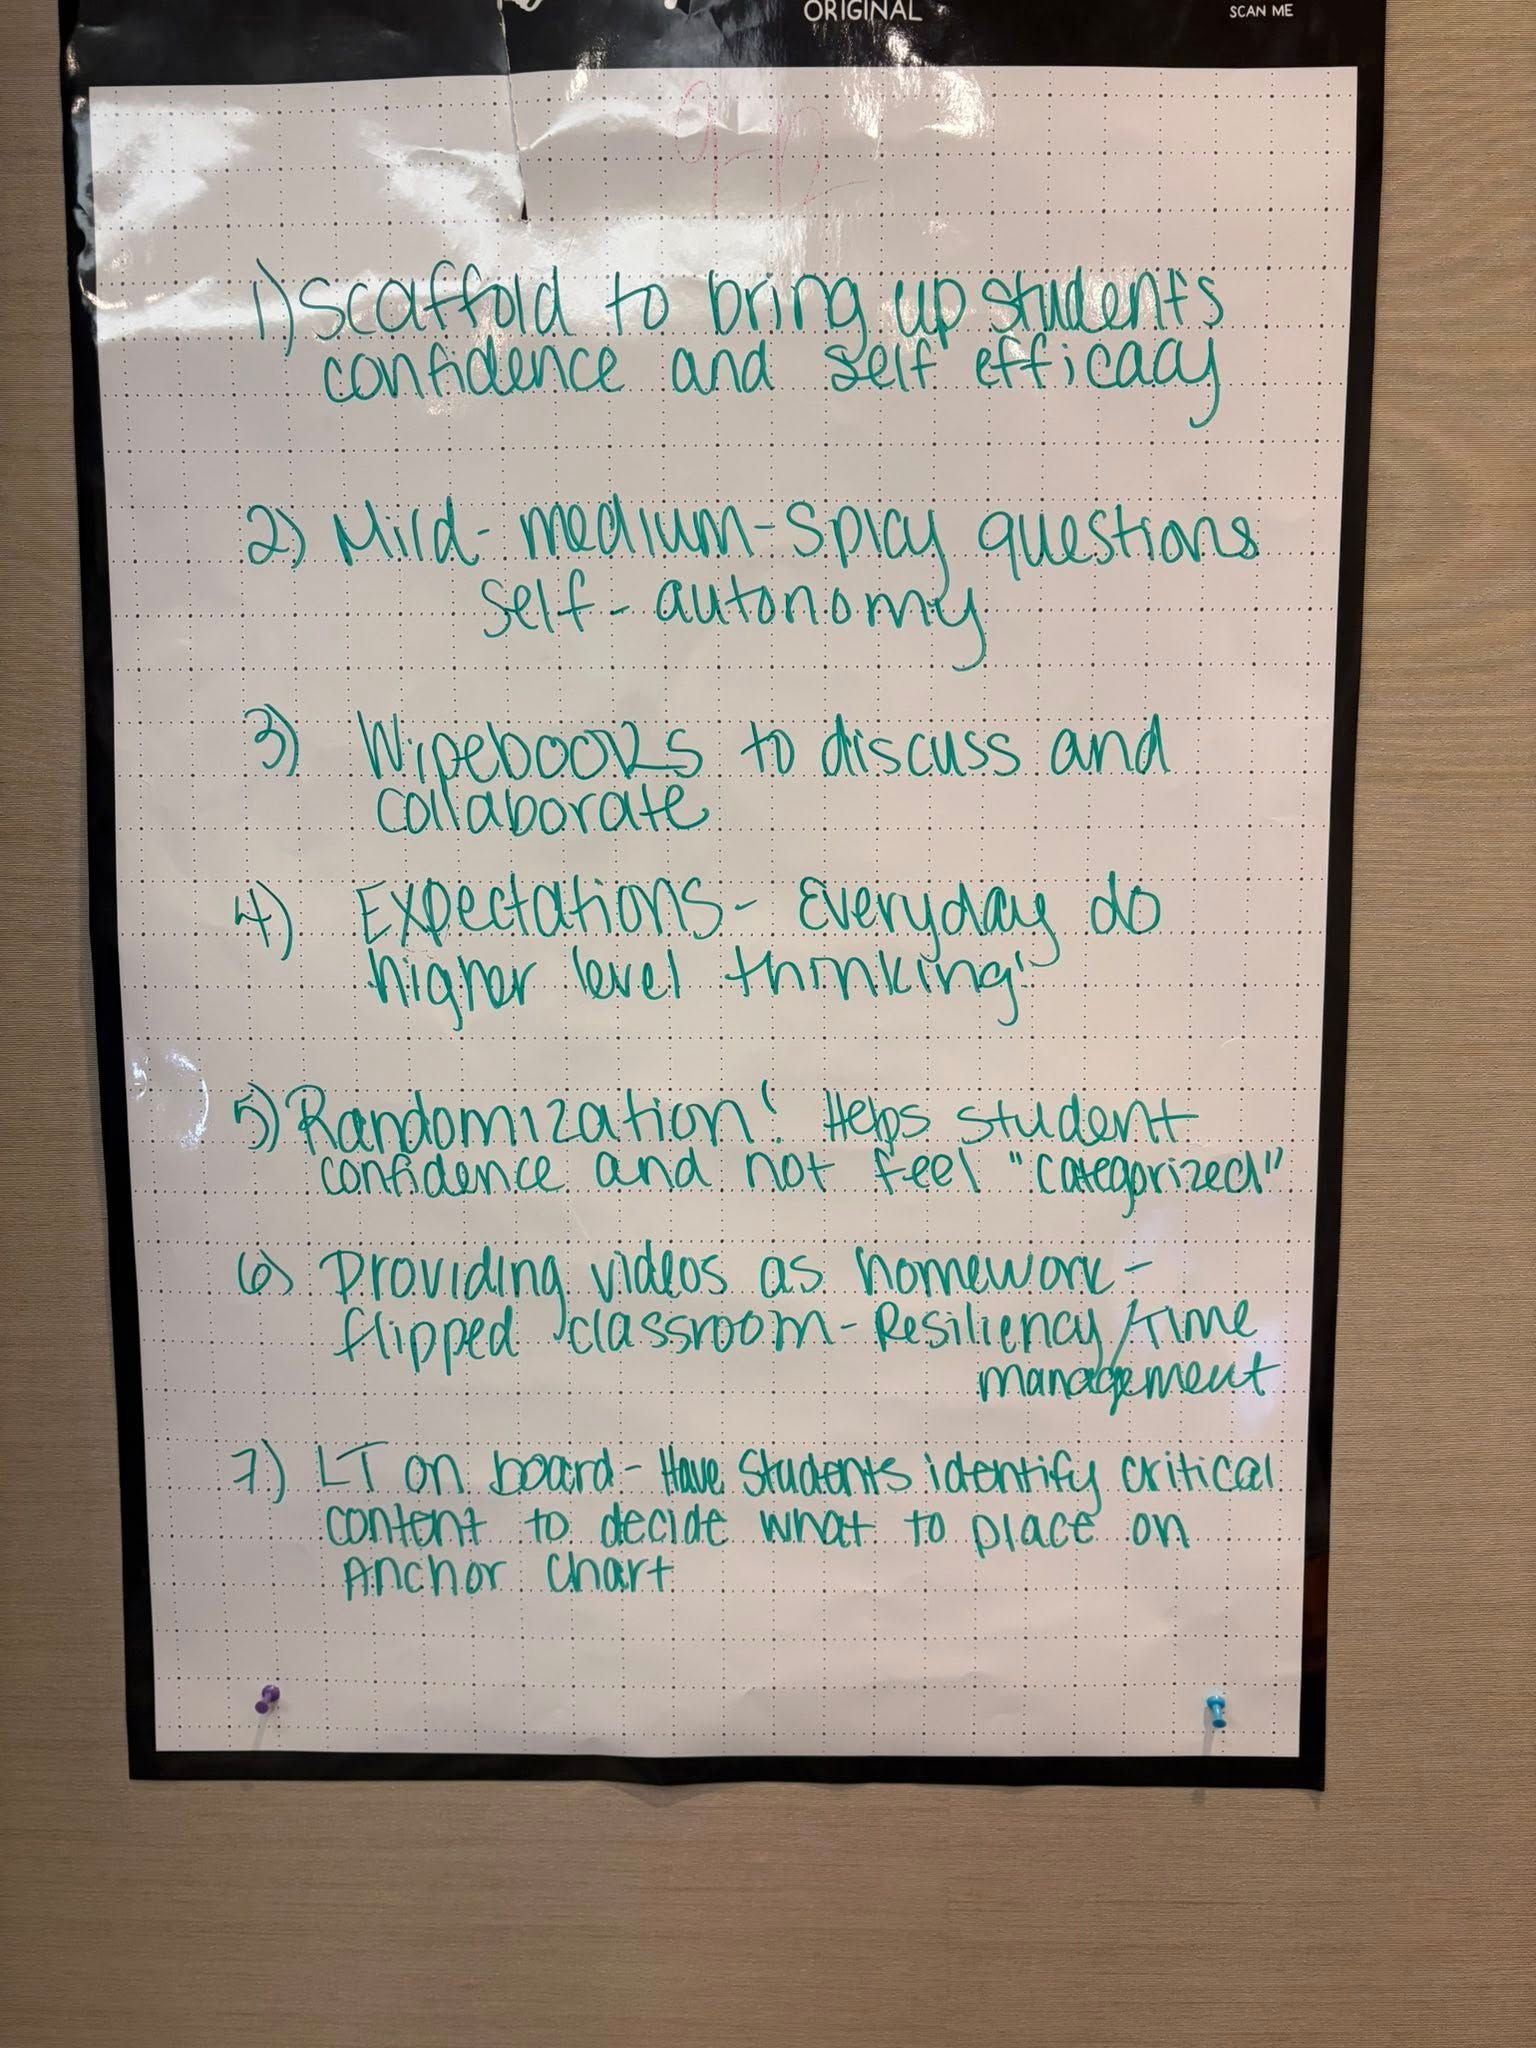 ORIGINAL
SCAN ME
9-12
1) Scaffold to bring up students
confidence and self efficacy
2) Mild- medium-spicy questions
self- autonomy
3) Wipebooks to discuss and
collaborate
4) Expectations- Everyday do
higher level thinking!
5) Randomization! Helps student
confidence and not feel "categorized"
6) Providing videos as homework-
flipped classroom- Resiliency/time
management
7) LT on board- Have Students identify critical
content to decide what to place on
Anchor Chart